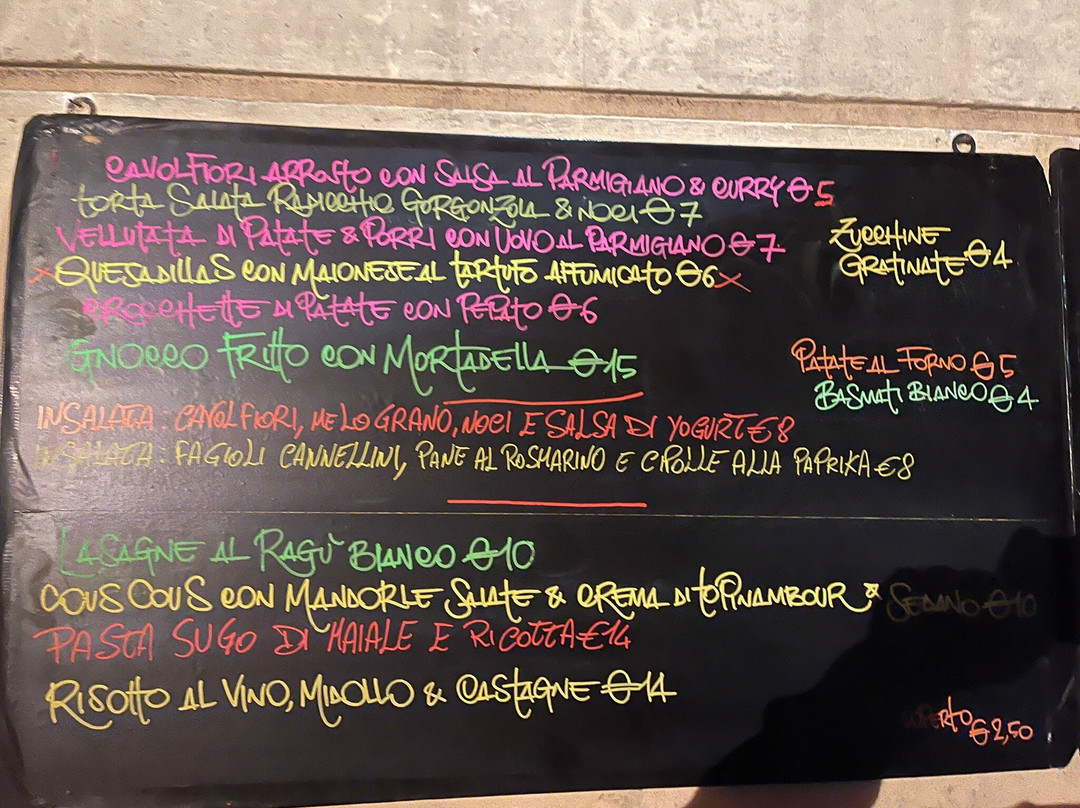 CAVOLFIORI ARROSTO CON SALSA AL PARMIGIANO & CURRY € 5
TORTA SALATA RADICCHIO GORGONZOLA & NOCI € 7
VELLUTATA DI PATATE & PORRI CON UOVO AL PARMIGIANO € 7
ZUCCHINE
GRATINATE € 4
X QUESADILLAS CON MAIONESE AL TARTUFO AFFUMICATO € 6 X
CROCCHETTE DI PATATE CON PEPATO € 6
GNOCCO FRITTO CON MORTADELLA € 15
PATATE AL FORNO € 5
BASMATI BIANCO € 4
INSALATA: CAVOLFIORI, MELOGRANO, NOCI E SALSA DI YOGURT € 8
INSALATA: FAGIOLI CANNELLINI, PANE AL ROSMARINO E CIPOLLE ALLA PAPRIKA € 8
LASAGNE AL RAGU' BIANCO € 10
COUS COUS CON MANDORLE SALATE & CREMA DI TOPINAMBOUR & SEDANO € 10
PASTA SUGO DI MAIALE E RICOTTA € 14
RISOTTO AL VINO, MIDOLLO & CASTAGNE € 14
COPERTO € 2,50